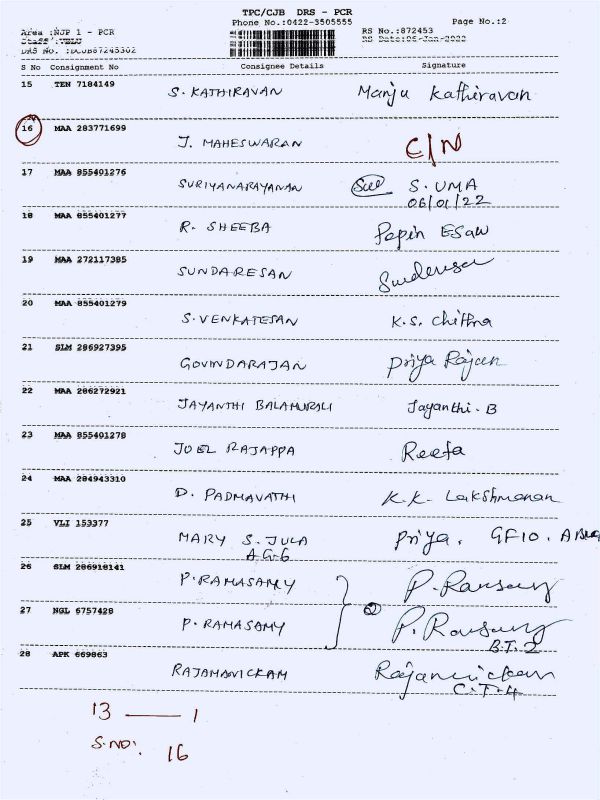 TPC/CJB DRS - PCR
Phone No.:0422-3505555 Page No.:2
Area :NJP 1 - PCR RS No.:872453
Staff :VELU RS Date:06-Jan-2022
DRS No. :DCJB87245302
S No Consignment No Consignee Details Signature
15 TEN 7184149 S. KATHIRAVAN Manju Kathiravan
16 MAA 283771699 J. MAHESWARAN C/N
17 MAA 855401276 SURIYANARAYANAN S. UMA
06/01/22
18 MAA 855401277 R. SHEEBA Pepin ESAW
19 MAA 272117385 SUNDARESAN
20 MAA 855401279 S. VENKATESAN K.S. Chithra
21 SLM 286927395 GOVINDARAJAN Priya Rajan
22 MAA 286272921 JAYANTHI BALAMURALI Jayanthi. B
23 MAA 855401278 JOEL RAJAPPA Reefa
24 MAA 284943310 D. PADMAVATHI K.K. Lakshmanan
25 VLI 153377 MARY S. JULA Priya. GF10.
AG6
26 SLM 286918141 P. RAMASAMY
27 NGL 6757428 P. RAMASAMY
B.T. 2
28 APK 669863 RAJAMANICKAM
C.T.4
13 — 1
S.NO: 16